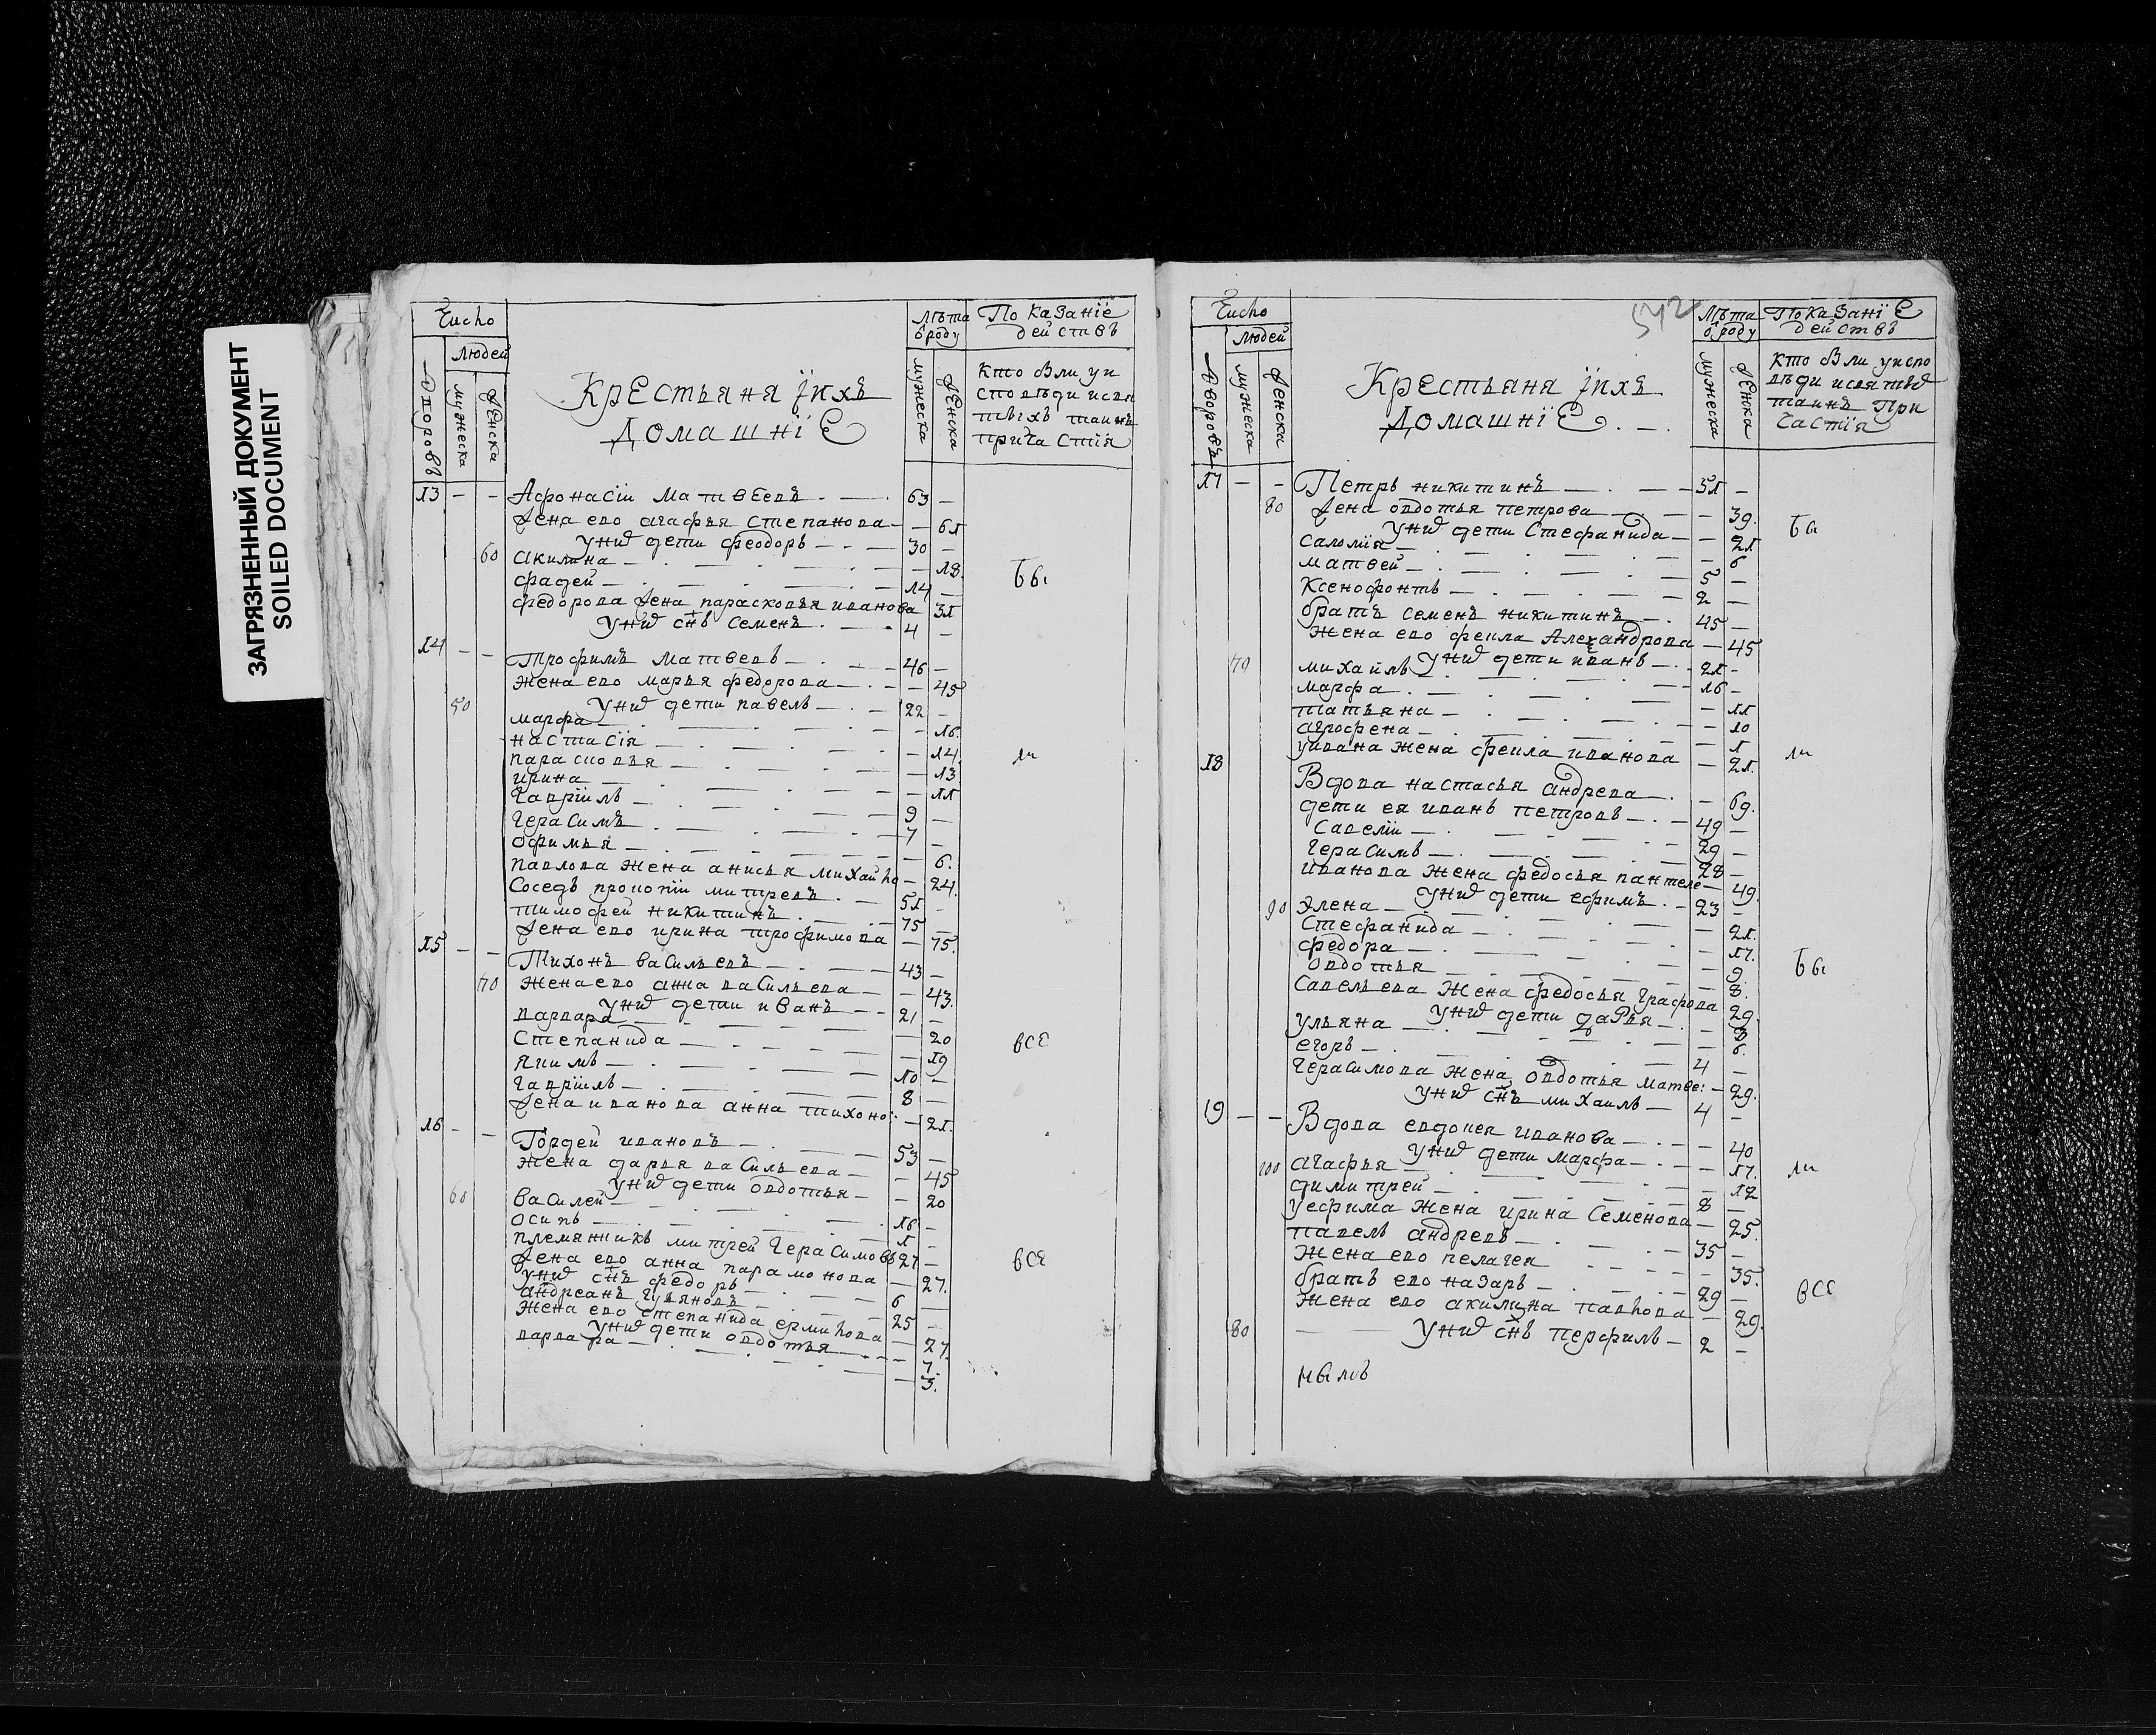 ЗАГРЯЗНЕННЫЙ ДОКУМЕНТ
SOILED DOCUMENT
Число
Людей
Дворовъ
мужеска
Женска
Крестьяня їихъ
Домашнїе
Лѣта
ѿроду
мужеска
Женска
Показанїе
действъ
кто былъ у и
споведи и свя
тыхъ таинъ
причастїя
13 – – Афонасїи Матвеевъ – 63 –
Жена ево агафья Степанова – – 61
У них дети феодоръ – 30 –
60 Акилина – – 18
фадей – 14 –
федорова Жена парасковья иванова 31
У них сн҃ъ Семенъ – 4 –
Бы
14 – – Трофимъ Матвевъ – 46 –
Жена ево марья федорова – – 45
50 У них дети павелъ – 22 –
марфа – – 16
настасїя – – 14
парасковья – – 13
ирина – – 11
Гаврїилъ – 9 –
Герасимъ – 7 –
Офимья – – 6
павлова Жена анисья михайло – 24
Соседъ прокопїи митревъ – 51 –
тимофей никитинъ – 75 –
Жена ево ирина трофимова – 75
ли
15 – – Тихонъ васильевъ – 43 –
70 Жена ево анна васильева – – 43
У них дети иванъ – 21 –
варвара – – 20
Степанида – – 19
якимъ – 10 –
Гаврїилъ – 8 –
Жена иванова анна тихоно: – 21
все
16 – – Гордей ивановъ – 53 –
Жена дарья васильева – – 45
У них дети овдотья – – 20
60 василей – 16 –
осипъ – 1 –
племянникъ митрей Герасимовъ 27 –
Жена ево анна парамонова – 27
У них сн҃ъ федоръ – 6 –
андреанъ Гурьяновъ – 25 –
Жена ево степанида ермилова – 27
У них дети овдотья – – 7
варвара – – 3
все
542
Число
Людей
Дворовъ
мужеска
Женска
Крестьяня їихъ
Домашнїе
Лѣта
ѿроду
мужеска
Женка
Показанїе
действъ
Кто былъ у испо
веди и святыхъ
таинъ При
Частїя
17 – – Петръ никитинъ – 51 –
80 Жена овдотья петрова – – 39
У них дети Стефанида – – 21
саломїя – – 6
матвей – 5 –
Ксенофонтъ – 2 –
братъ семенъ никитинъ – 45 –
Жена ево фекла Алеѯандрова – 45
У них дети иванъ – 21 –
70 михайлъ – 16 –
марфа – – 11
татьяна – – 10
агрофена – – 1
у ивана Жена фекла иванова – 21
Бы
ли
18 Вдова настасья андрева – – 69
дети ея иванъ петровъ – 49 –
Савелїи – 29 –
Герасимъ – 28 –
иванова Жена федосья пантеле – 49
У них дети ефимъ – 23 –
90 Элена – – 21
Стефанида – – 17
федора – – 9
овдотья – – 8
Савельева Жена федосья Графова 29
У них дети дарья – 8
ульяна – – 6
егоръ – 4 –
Герасимова Жена овдотья матве: – 29
У них сн҃ъ михаилъ – 4 –
Бы
19 – – Вдова евдокея иванова – – 40
У них дети марфа – – 17
100 агафья – – 12
димитрей – 8 –
у ефима Жена ирина Семенова – 25
павелъ андревъ – 35 –
Жена ево пелагея – 35
братъ ево назаръ – 29 –
Жена ево акилина павлова – 29
80 У них сн҃ъ перфилъ – 2 –
ли
все